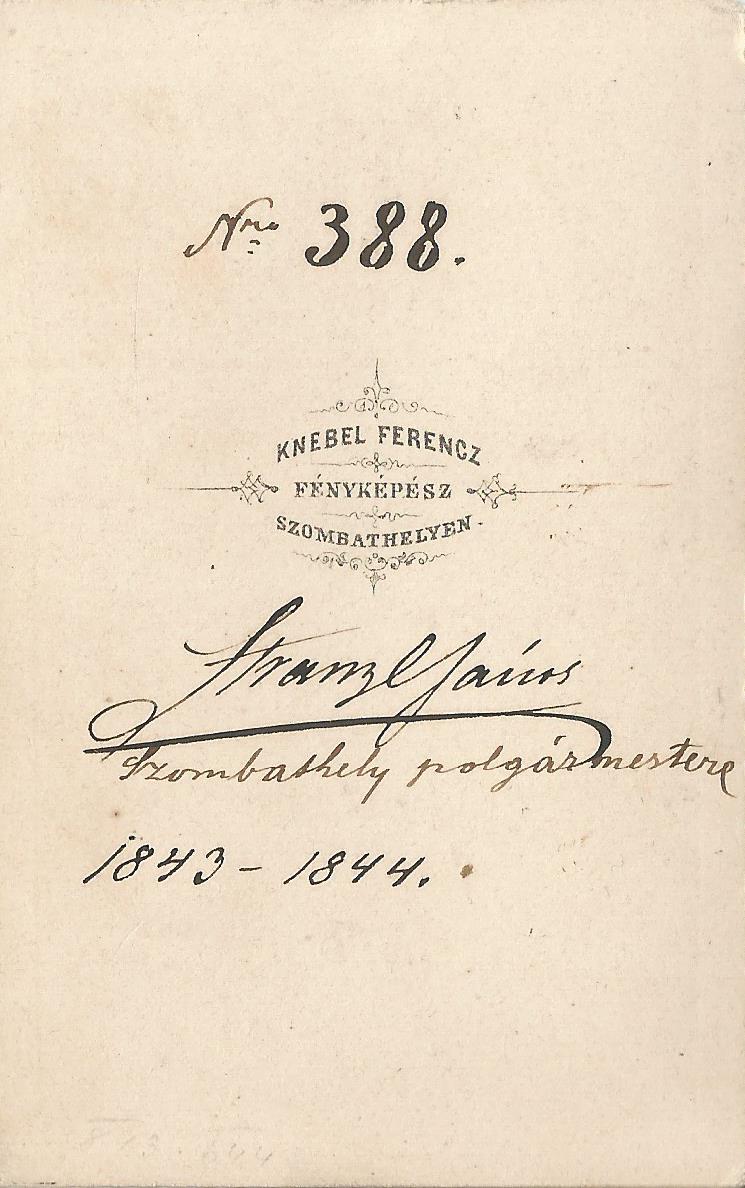 Nro 388.
KNEBEL FERENCZ
FÉNYKÉPÉSZ
SZOMBATHELYEN.
Stranzl János
Szombathely polgármestere
1843 – 1844.